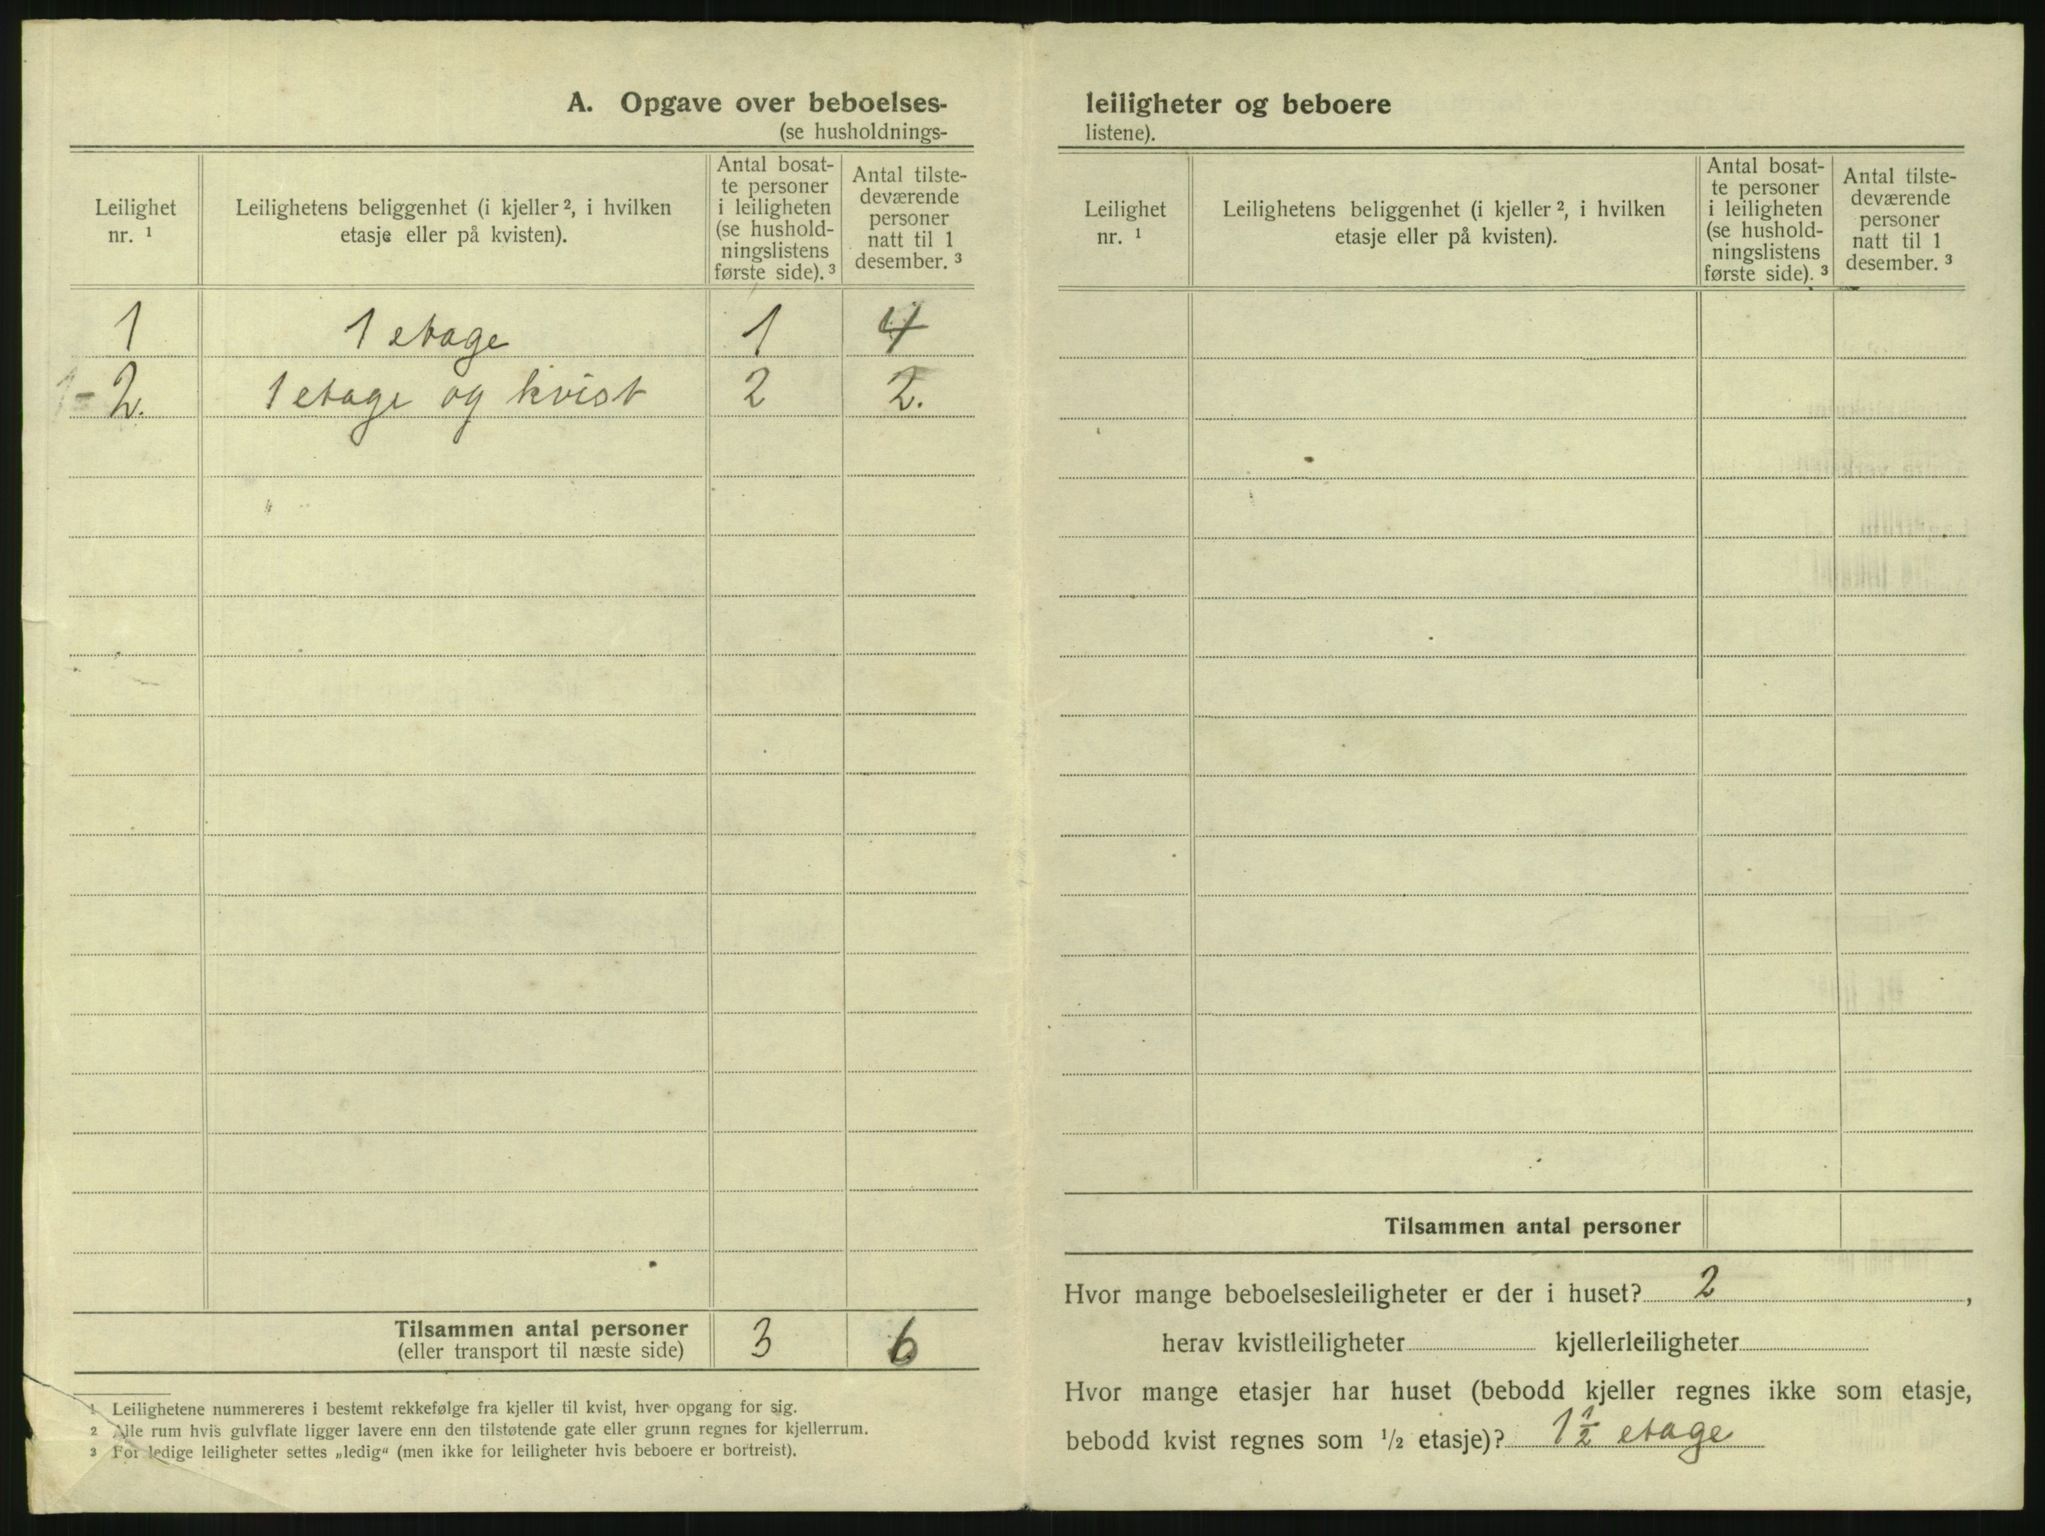 A. Opgave over beboelses-
(se husholdnings-
Leilighet
nr. 1
Leilighetens beliggenhet (i kjeller 2, i hvilken
etasje eller på kvisten).
Antal bosat-
te personer
i leiligheten
(se hushold-
ningslistens
første side). 3
Antal tilste-
deværende
personer
natt til 1
desember. 3
1 1 etage 1 4
1-2. 1 etage og kvist 2 2.
Tilsammen antal personer 3 6
(eller transport til næste side)
1 Leilighetene nummereres i bestemt rekkefølge fra kjeller til kvist, hver opgang for sig.
2 Alle rum hvis gulvflate ligger lavere enn den tilstøtende gate eller grunn regnes for kjellerrum.
3 For ledige leiligheter settes „ledig“ (men ikke for leiligheter hvis beboere er bortreist).
leiligheter og beboere
listene).
Leilighet
nr. 1
Leilighetens beliggenhet (i kjeller 2, i hvilken
etasje eller på kvisten).
Antal bosat-
te personer
i leiligheten
(se hushold-
ningslistens
første side). 3
Antal tilste-
deværende
personer
natt til 1
desember. 3
Tilsammen antal personer
Hvor mange beboelsesleiligheter er der i huset? 2,
herav kvistleiligheter kjellerleiligheter
Hvor mange etasjer har huset (bebodd kjeller regnes ikke som etasje,
bebodd kvist regnes som 1/2 etasje)? 1 1/2 etage